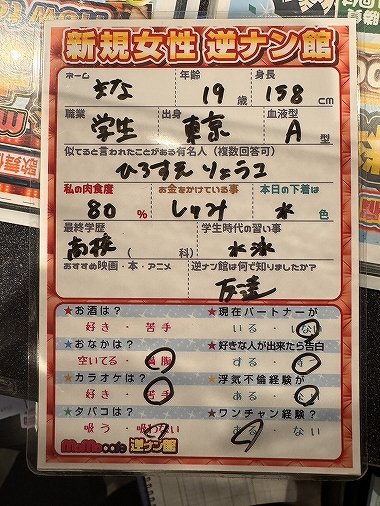 新規女性 逆ナン館
ネーム 年齢 身長
きな 19歳 158cm
職業 出身 血液型
学生 東京 A型
似てると言われたことがある有名人（複数回答可）
ひろすえ りょうこ
私の肉食度 お金をかけている事 本日の下着は
80% しゅみ 水色
最終学歴 学生時代の習い事
高校（ 科） 水泳
おすすめ映画・本・アニメ 逆ナン館は何で知りましたか?
友達
★お酒は? ★現在パートナーが
好き・苦手 いる・いない
★おなかは? ★好きな人が出来たら告白
空いてる・満腹 する・待つ
★カラオケは? ★浮気不倫経験が
好き・苦手 ある・ない
★タバコは? ★ワンチャン経験?
吸う・吸わない ある・ない
MoMo cafe 逆ナン館